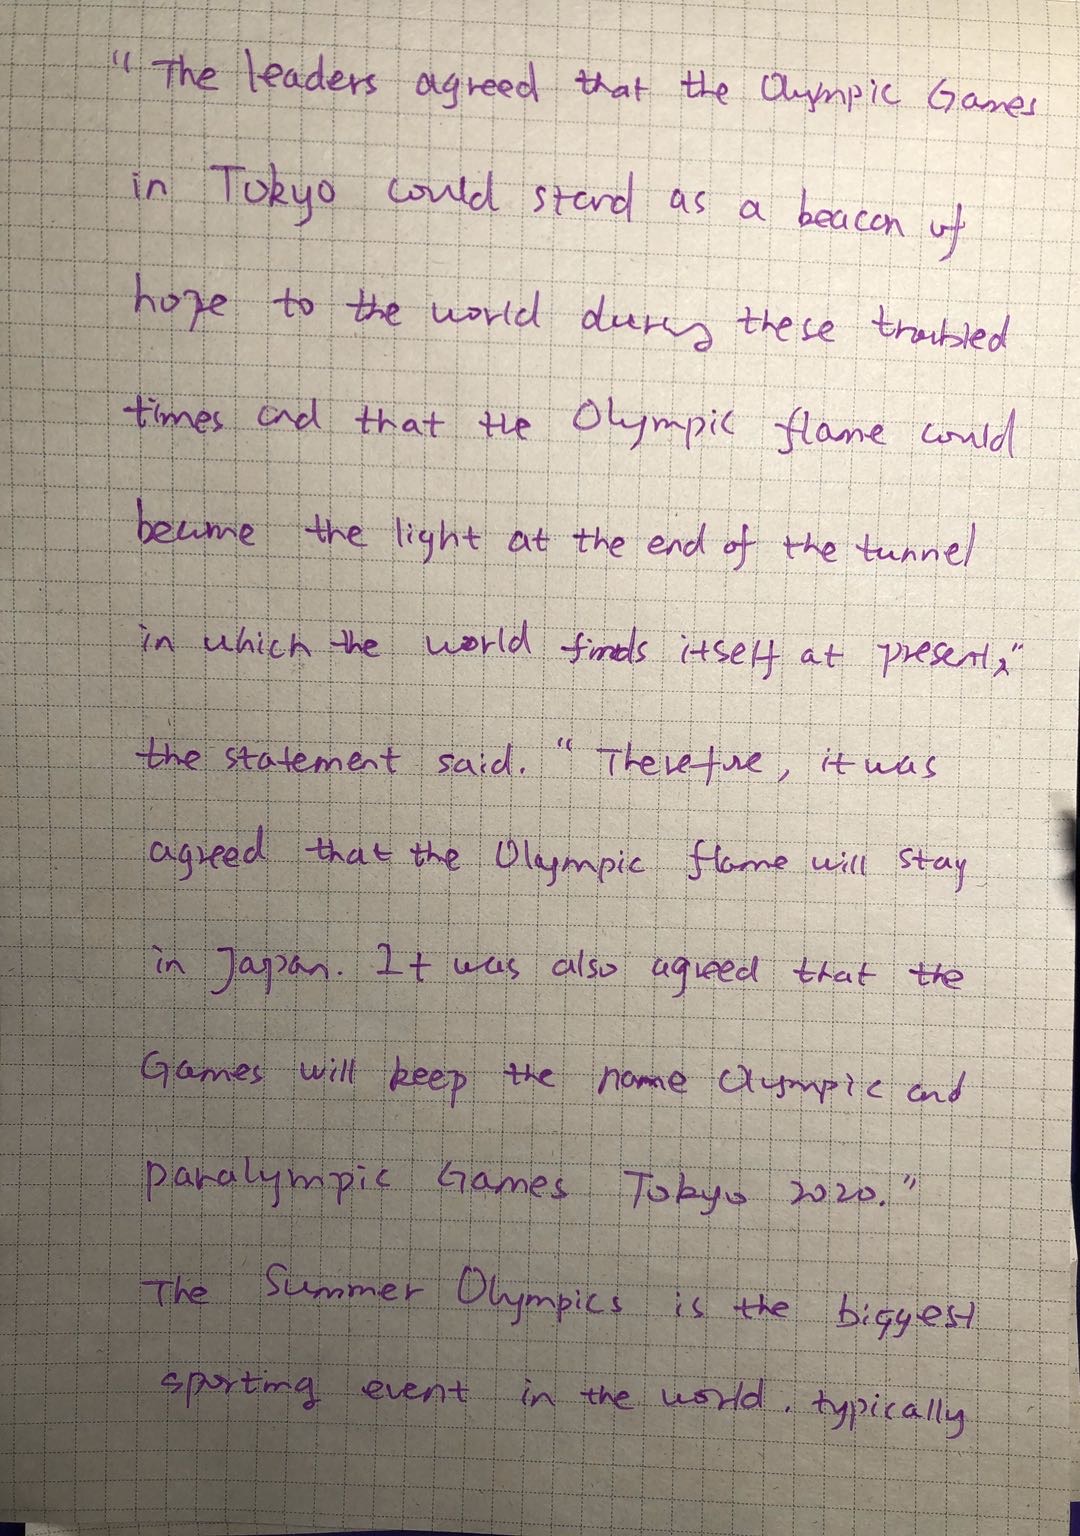 "The leaders agreed that the Olympic Games
in Tokyo could stand as a beacon of
hope to the world during these troubled
times and that the Olympic flame could
become the light at the end of the tunnel
in which the world finds itself at present,"
the statement said. "Therefore, it was
agreed that the Olympic flame will stay
in Japan. It was also agreed that the
Games will keep the name Olympic and
paralympic Games Tokyo 2020."
The Summer Olympics is the biggest
sporting event in the world. typically